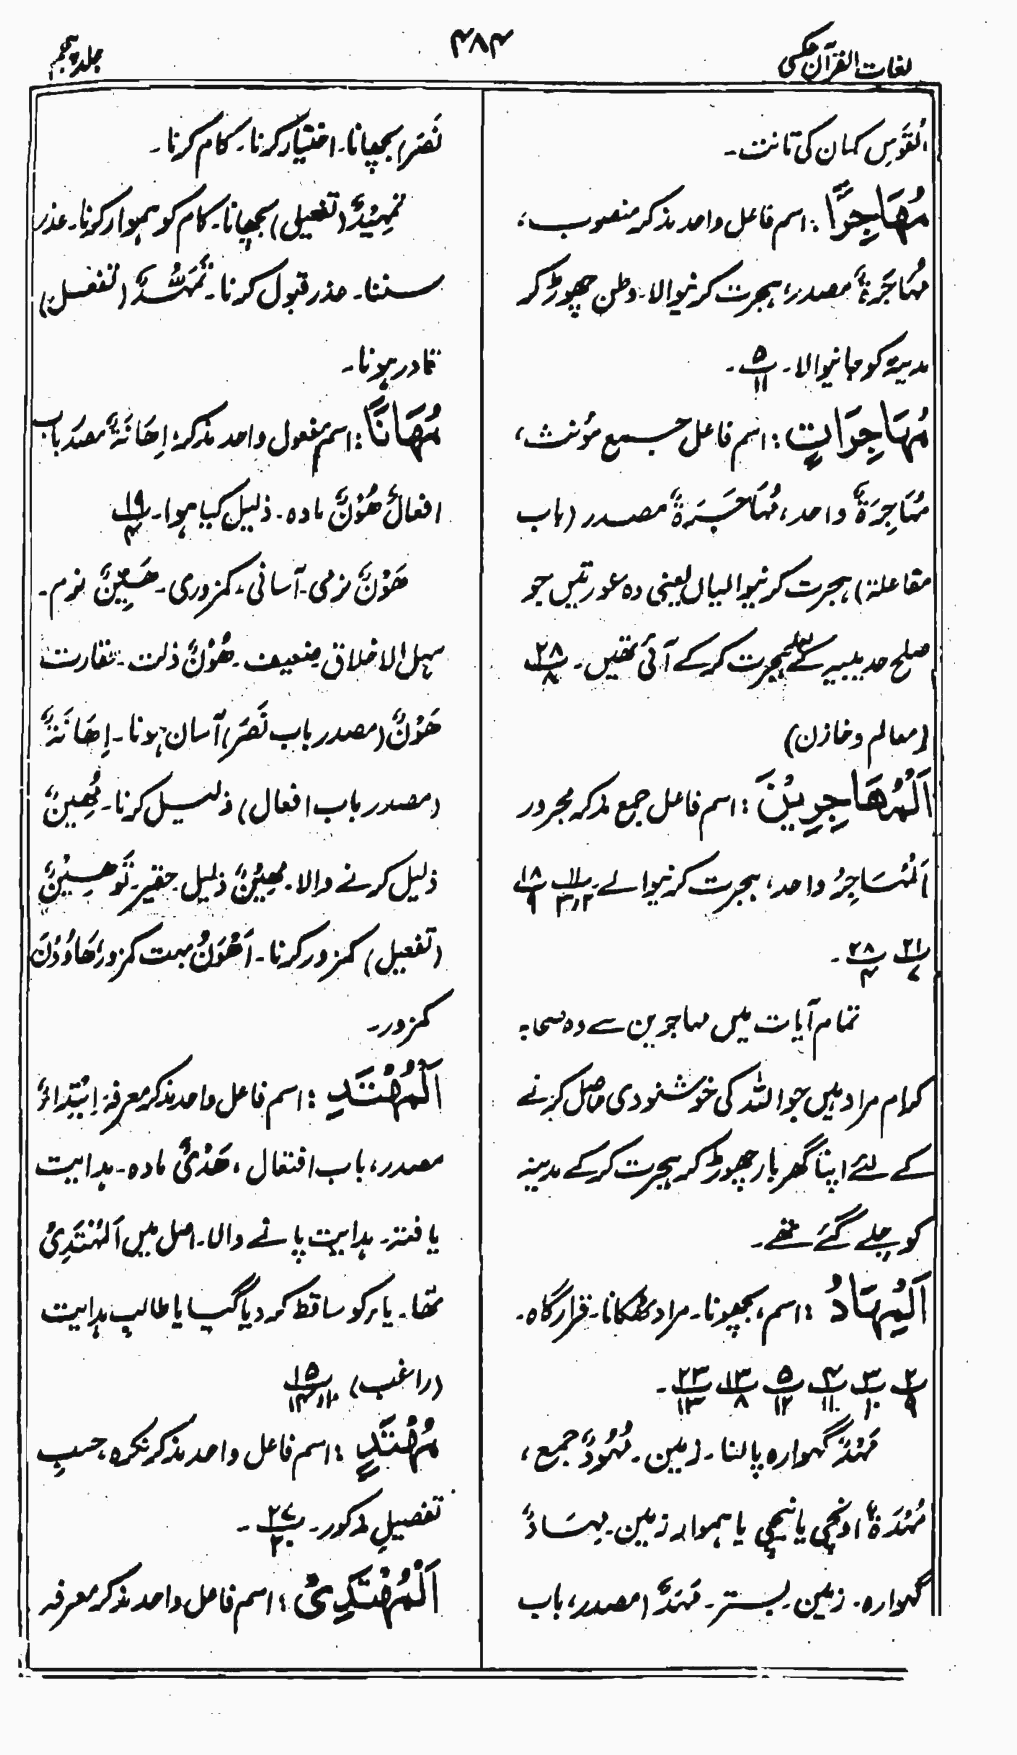 لغات القرآن عکسی
۴۸۴
جلد پنجم
القَوَسِ کمان کی تانت۔
مُهَاجِرًا: اسم فاعل واحد مذکر منصوب،
مُهَاجَرَةٌ مصدر، ہجرت کرنیوالا۔ وطن چھوڑ کر
مدینہ کو جانیوالا۔ ۵/۱۱۔
مُهَاجِرَاتٍ: اسم فاعل جمع مؤنث،
مُهَاجِرَةٌ واحد، مُهَاجَرَةٌ مصدر (باب
مفاعلة) ہجرت کرنیوالیاں یعنی وہ عورتیں جو
صلح حدیبیہ کے سلسلے ہجرت کرکے آئی تھیں۔ ۲۸/۸
(معالم وخازن)
اَلْمُهَاجِرِیْنَ: اسم فاعل جمع مذکر مجرور
اَلْمُهَاجِرُ واحد، ہجرت کرنیوالے۔ ۱۱/۳،۲ ۱۸/۹
۲۱/۷ ۲۸/۴۔
تمام آیات میں مہاجرین سے وہ صحابہ
کرام مراد ہیں جو اللہ کی خوشنودی حاصل کرنے
کے لئے اپنا گھر بار چھوڑ کر ہجرت کرکے مدینہ
کو چلے گئے تھے۔
اَلْمِهَادُ: اسم، بچھونا۔ مراد ٹھکانا۔ قرارگاہ۔
۲/۹ ۳/۱۰ ۴/۱۱ ۵/۱۲ ۱۳/۸ ۲۳/۱۳۔
مَهْدٌ گہوارہ پالنا۔ زمین۔ مُهُوْدٌ جمع،
مُهْدَةٌ اونچی یا نیچی یا ہموار زمین۔ مِهَادٌ
گہوارہ۔ زمین۔ بستر۔ مَهْدٌ (مصدر، باب
نَصَرَ) بچھانا۔ اختیار کرنا۔ کام کرنا۔
تَمْهِیْدٌ (تفعیل) بچھانا۔ کام کو ہموار کرنا۔ عذر
سننا۔ عذر قبول کرنا۔ تَمَهُّدٌ (تفعل)
قادر ہونا۔
مُهَانًا: اسم مفعول واحد مذکر، اِهَانَةٌ مصدر باب
افعال هُوْنٌ مادہ۔ ذلیل کیا ہوا۔ ۱۹/۴
هَوْنٌ نرمی۔ آسانی۔ کمزوری۔ هَیِّنٌ نرم۔
سہل الاخلاق ضعیف۔ هُوْنٌ ذلت۔ حقارت
هَوْنٌ (مصدر باب نَصَرَ) آسان ہونا۔ اِهَانَةٌ
(مصدر باب افعال) ذلیل کرنا۔ مُهِیْنٌ
ذلیل کرنے والا۔ مَهِیْنٌ ذلیل حقیر۔ تَوْهِیْنٌ
(تفعیل) کمزور کرنا۔ اَهْوَنُ بہت کمزور، هَاوُوْنَ
کمزور۔
اَلْمُهْتَدِ: اسم فاعل واحد مذکر معرفہ، اِهْتِدَاءٌ
مصدر، باب افتعال، هَدْیٌ مادہ۔ ہدایت
یافتہ۔ ہدایت پانے والا۔ اصل میں اَلْمُهْتَدِیُ
تھا۔ یاء کو ساقط کر دیا گیا یا طالب ہدایت
(راغب) ۱۵/۱۴،۱۰
مُهْتَدٍ: اسم فاعل واحد مذکر نکرہ، حسبِ
تفصیل مذکور۔ ۲۷/۲۰۔
اَلْمُهْتَدِیْ: اسم فاعل واحد مذکر معرفہ